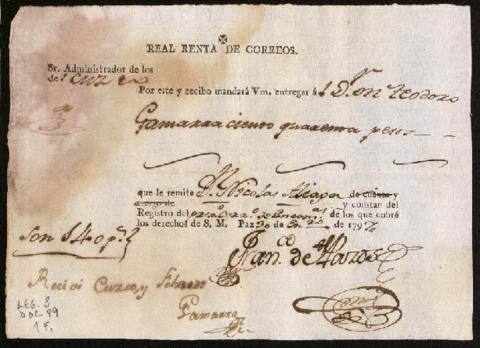 REAL RENTA DE CORREOS.
Sr. Administrador de los
de Cuzco
Por este y recibo mandará Vm. entregar á Dn. Teodoro
Gamarra ciento quarenta pesos
que le remite Dn. Nicolas Aliaga de cuenta y
riesgo de y constan del
Registro del de los que cobré
los derechos de S. M. Paz de de 179
Son 140 ps.
Franco. de Horos
Reciví Cuzco y Febrero
Gamarra
LEG. 3
DOC. 89
1 F.